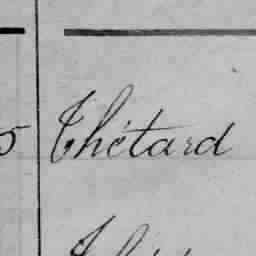 5 Thétard